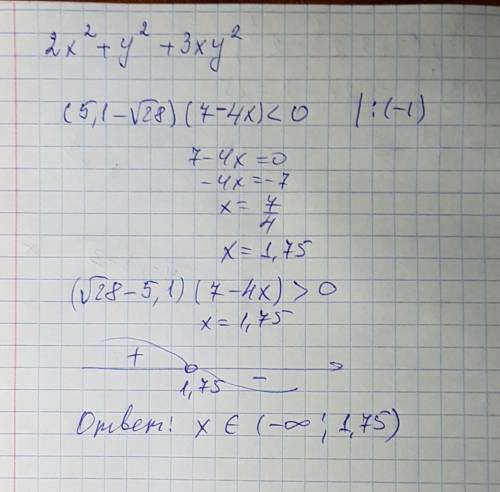 2x² + y² + 3xy²
(5,1 - √28) (7 - 4x) < 0 | : (-1)
7 - 4x = 0
-4x = -7
x = 7/4
x = 1,75
(√28 - 5,1) (7 - 4x) > 0
x = 1,75
+ -
1,75
Ответ: x ∈ (-∞; 1,75)